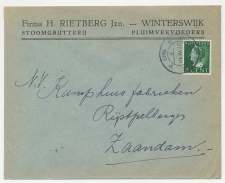 Firma H. RIETBERG Jzn. — WINTERSWIJK
STOOMGRUTTERIJ PLUIMVEEVOEDERS
NEDERLAND
CENT
N.V. Kamphuis fabrieken
Rijstpellerij
Zaandam.